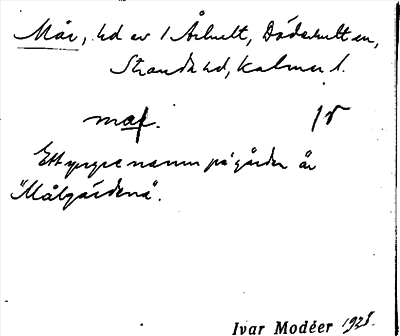 Mår, hd av 1 Århult, Döderhult sn,
Stranda hd, Kalmar l.
maf. 1 v
Ett yngre namn på gården är
"Målgårdena".
Ivar Modéer 1928.